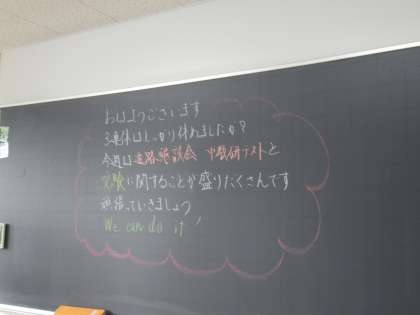 おはようございます
3連休はしっかり休めましたか?
今週は進路懇談会 中数研テストと
受験に関することが盛りだくさんです
頑張っていきましょう
We can do it!